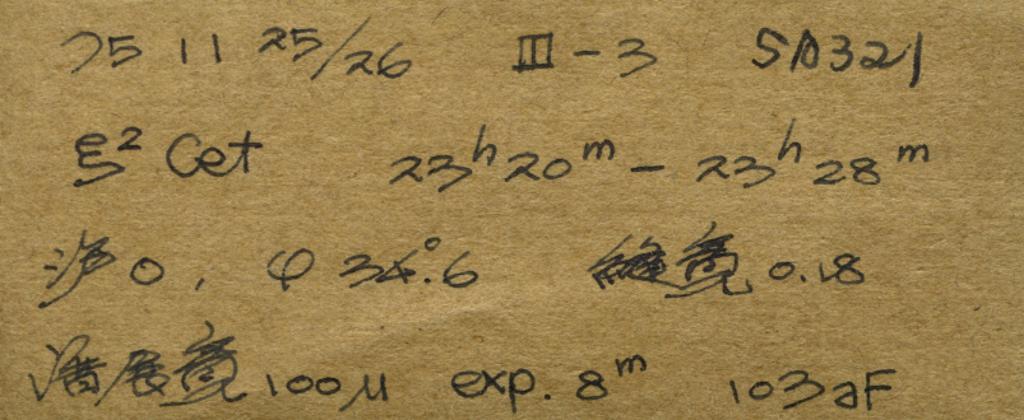 75 11 25/26 III-3
ξ² Cet 23ʰ20ᵐ - 23ʰ28ᵐ
沪 0, φ 34°.6 缝宽 0.18
谱展宽 100μ exp. 8ᵐ 103aF